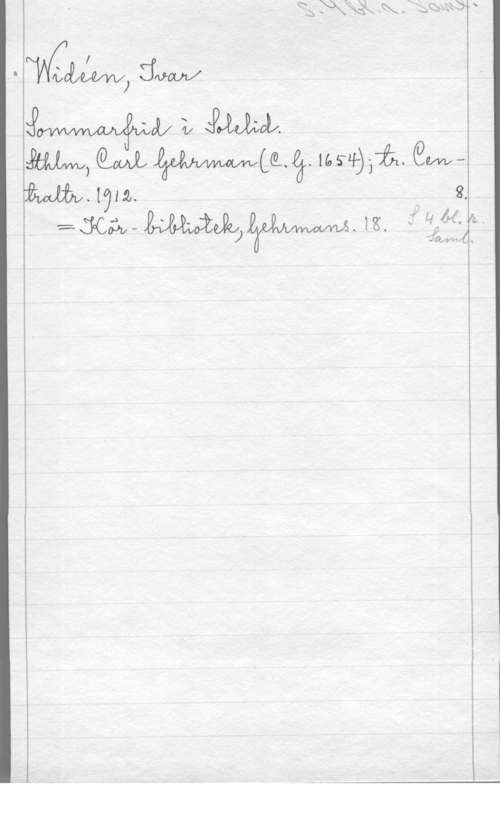 Widéen, Ivar
Sommarfrid i Solelid.
Sthlm, Carl Gehrman (C. G. 1654); tr. Cen-
traltr. 1912. 8.
= Kör-bibliotek, Gehrmans. 18.
Saml.